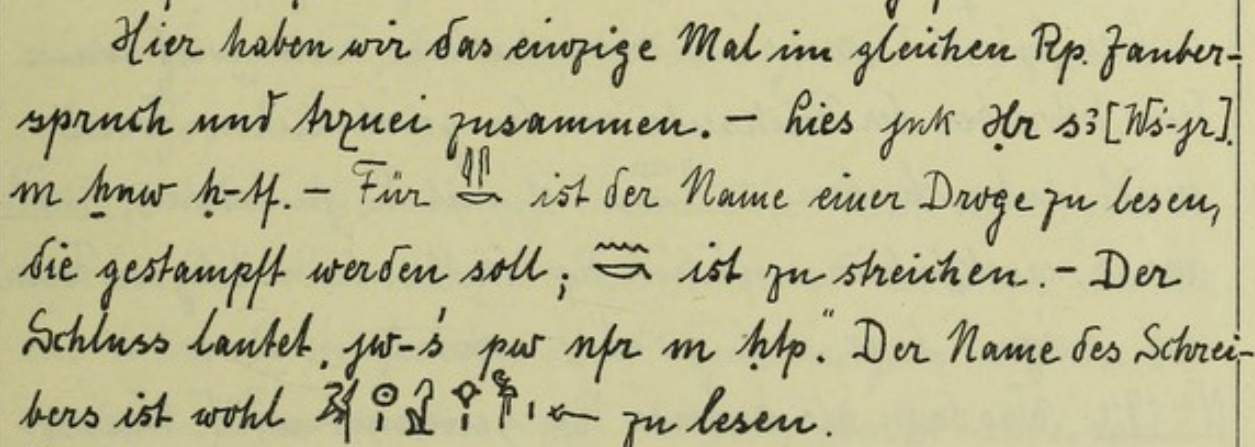 Hier haben wir das einzige Mal im gleichen Rp. Zauber-
spruch und Arznei zusammen. – Lies jnk Ḥr s3 [Wś-jr].
m ẖnw ḥ-tf. – Für 𓇌 𓎡 ist der Name einer Droge zu lesen,
die gestampft werden soll; 𓈖 𓎡 ist zu streichen. – Der
Schluss lautet „jw-ś pw nfr m ḥtp.“ Der Name des Schrei-
bers ist wohl zu lesen.